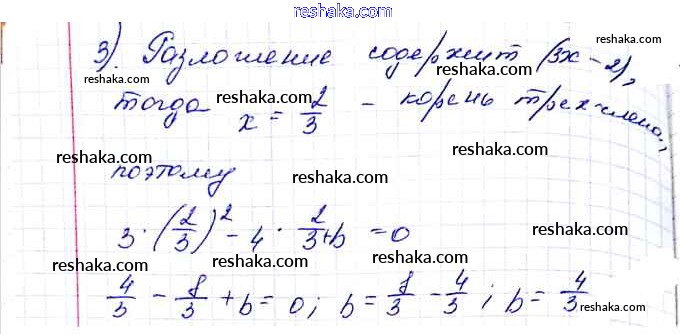 reshaka.com
3). Разложение содержит (3x-2),
reshaka.com reshaka.com
тогда x = 2/3 - корень трехчлена,
reshaka.com reshaka.com
reshaka.com reshaka.com
поэтому
reshaka.com reshaka.com
3·(2/3)² - 4·2/3 + b = 0
reshaka.com reshaka.com reshaka.com
4/3 - 8/3 + b = 0; b = 8/3 - 4/3; b = 4/3
reshaka.com reshaka.com reshaka.com